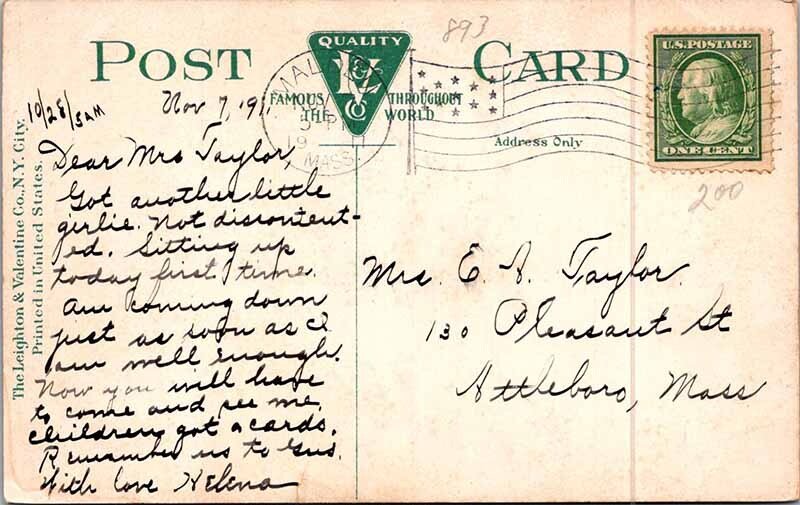 893
POST CARD
QUALITY
L&V
Co
FAMOUS THROUGHOUT
THE WORLD
MASS.
Address Only
U.S. POSTAGE
ONE CENT
200
10/28/5AM
Nov 7, 1911
Dear Mrs Taylor,
Got another little
girlie. Not discontent-
ed. Sitting up
today first time.
Am coming down
just as soon as I
am well enough.
Now you will have
to come and see me.
children got cards.
Remember us to Gus.
With love Helena
Mrs. E. A. Taylor.
130 Pleasant St
Attleboro, Mass
The Leighton & Valentine Co., N.Y. City.
Printed in United States.